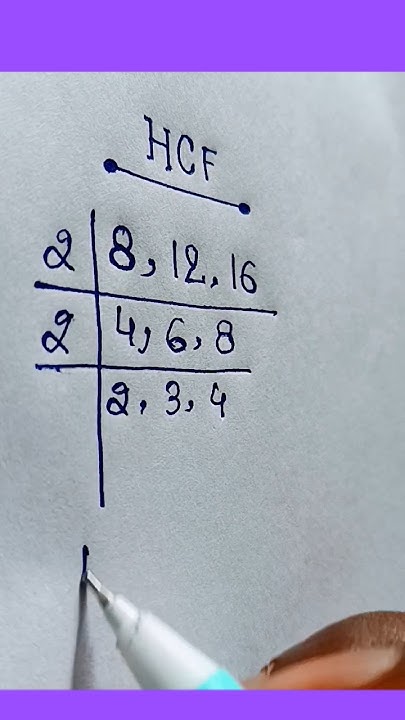 HCF
2 | 8, 12, 16
2 | 4, 6, 8
2, 3, 4